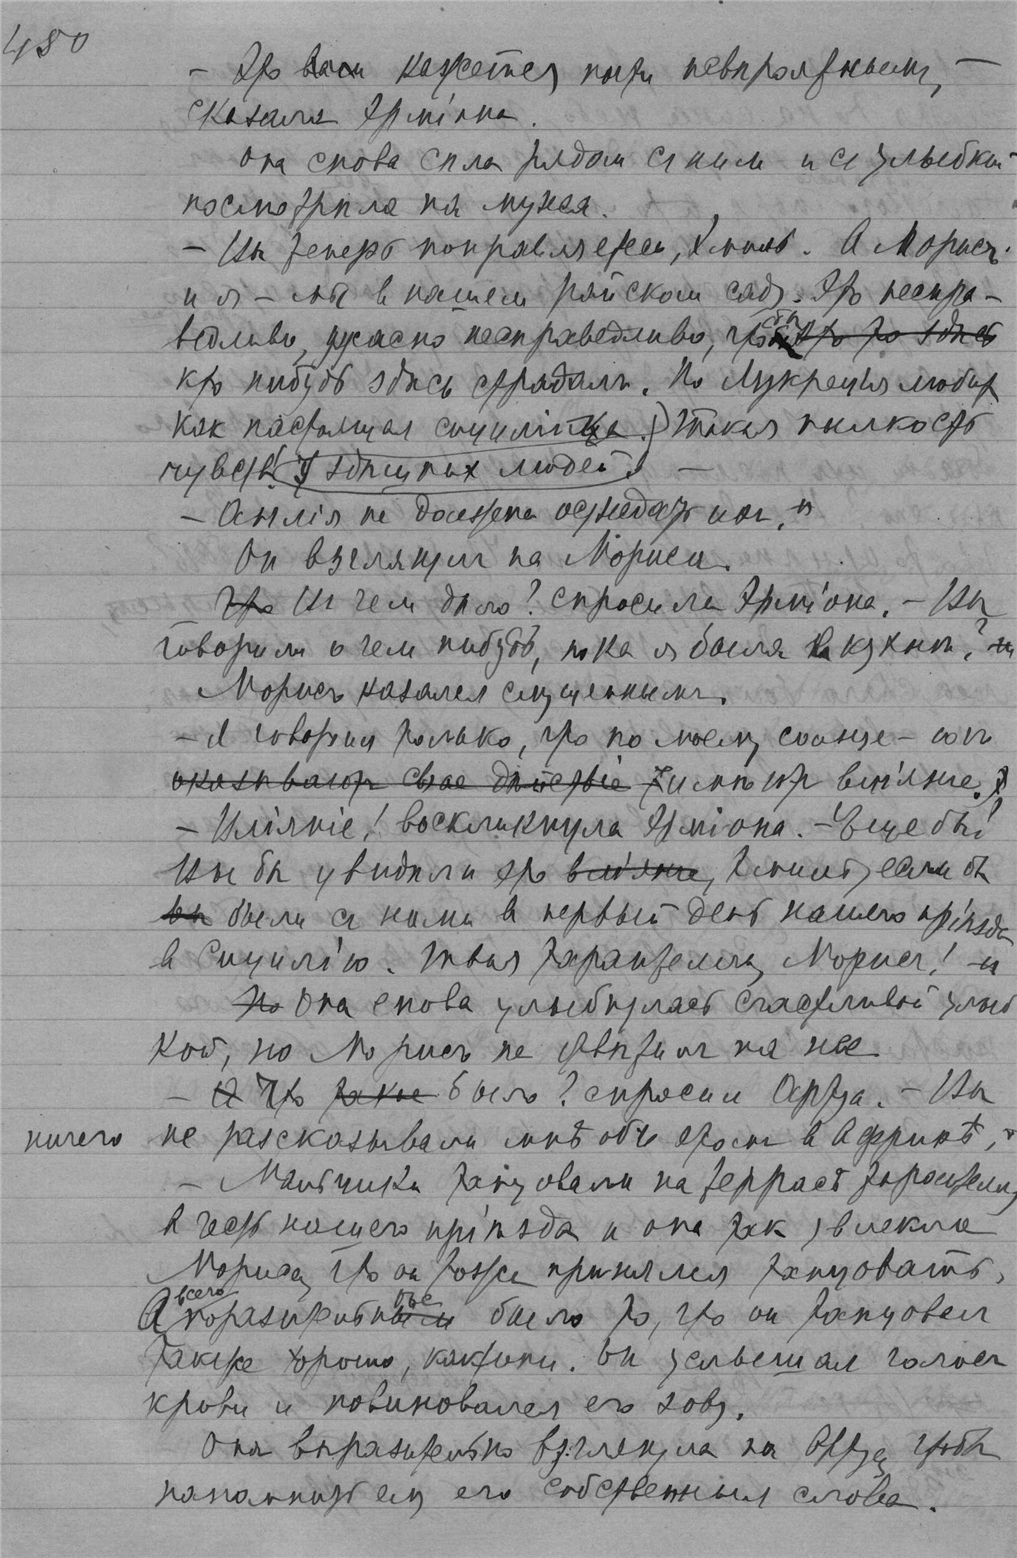 480
— Это вам кажется почти невѣроятнымъ, —
сказала Эрміона.
Она снова сѣла рядом съ ним и съ улыбкой
посмотрѣла на мужа.
— Вы теперь поправляетесь, Эмиль. А Морисъ
и я — мы в нашем райском саду. Это неспра-
ведливо, ужасно несправедливо, чтобы это то здѣсь
кто нибудь здѣсь страдалъ. Но Лукреція любит
как настоящая сициліанка. Такая пылкость
чувств! У здѣшних людей. —
— Англія не должна осуждать их. —
Он взглянул на Мориса.
Что Въ чем дѣло? спросила Эрміона. — Вы
говорили о чем нибудь, пока я была в кухнѣ? —
Морисъ казался смущеннымъ.
— Я говорил только, что по моему солнце — они
оказывают свое дѣйствіе имѣют вліяніе.
— Вліяніе! воскликнула Эрміона. — Еще бы!
Вы бы увидѣли это вліяніе, Эмиль, если бы
вы были съ нами в первый день нашего пріѣзда
в Сицилію. Твоя тарантелла, Морисъ! —
Но Она снова улыбнулась счастливой улыб
кой, но Морисъ не отвѣтил на нее
— А Что такое было? спросил Артуа. — Вы
ничего не рассказывали мнѣ объ этом в Африкѣ, —
— Мальчики танцовали на террасѣ тарантеллу
в честь нашего пріѣзда и она так увлекла
Мориса, что он тоже принялся танцовать.
А всего поразительнѣе было то, что он танцовал
также хорошо, как они. Он услышал голос
крови и повиновался его зову.
Она выразительно взглянула на Артуа, чтобы
напомнить ему его собственныя слова.